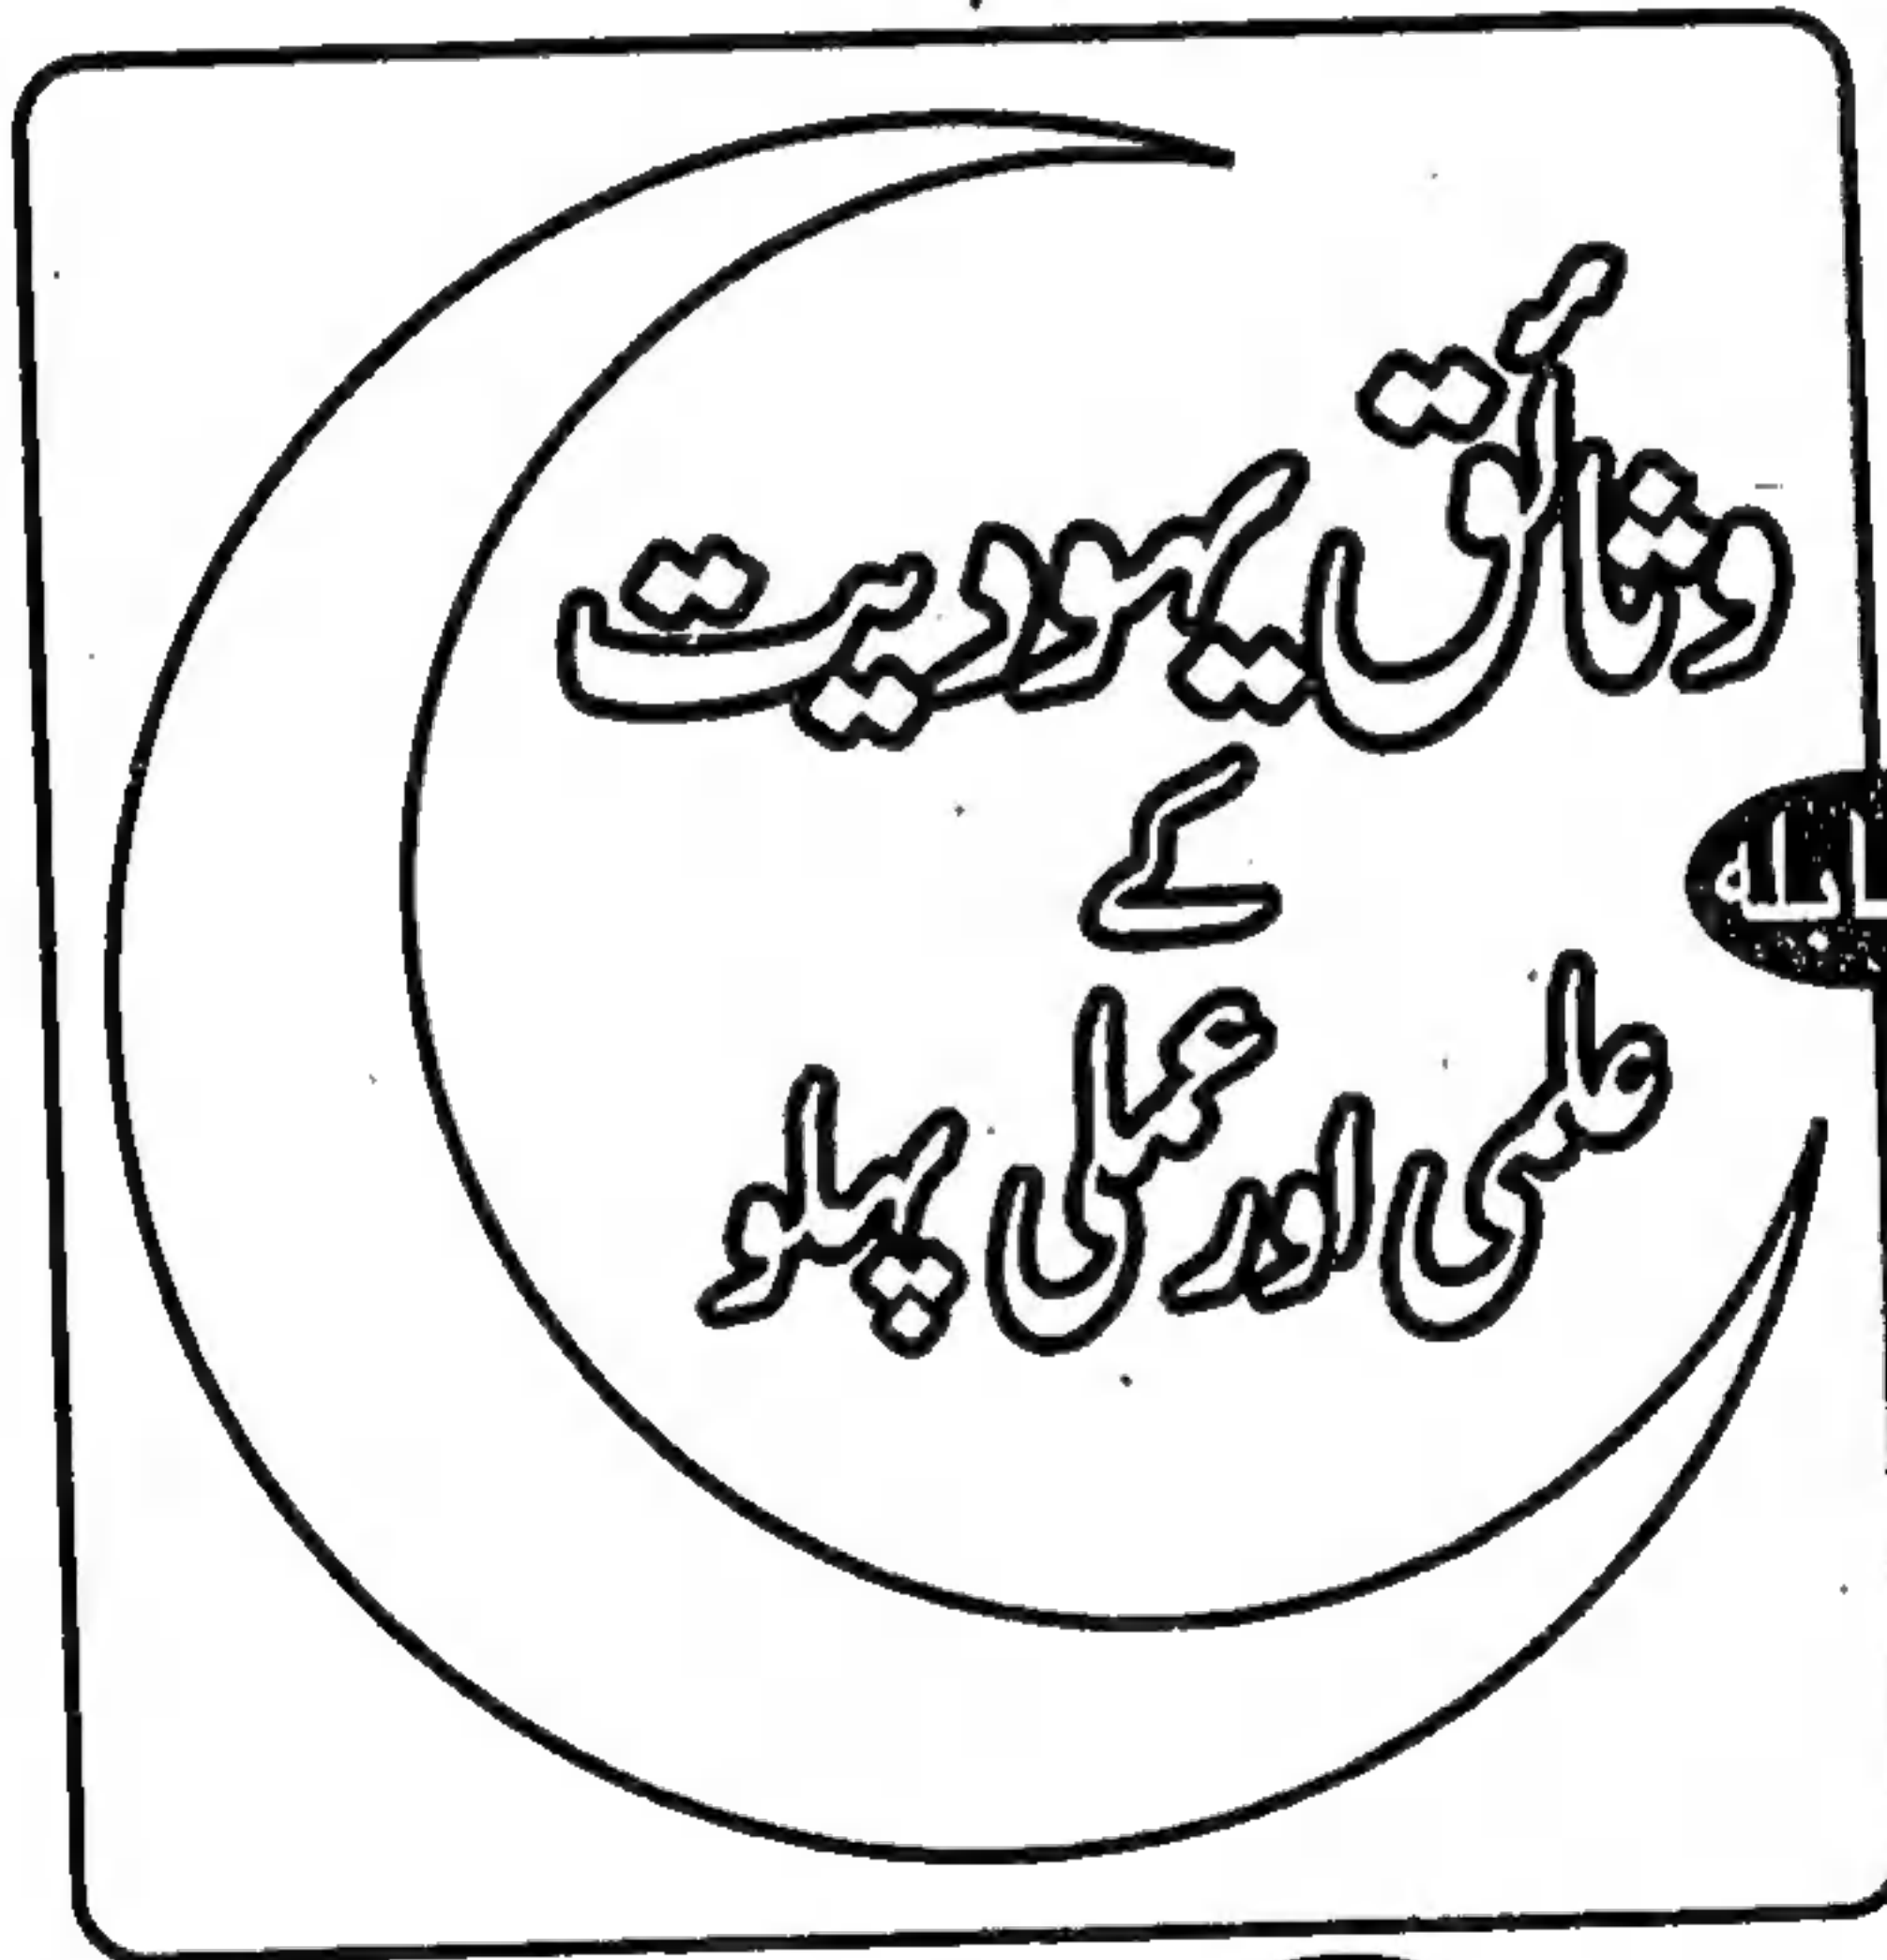 وثائق یہودیت
کے
علمی اور عملی پہلو